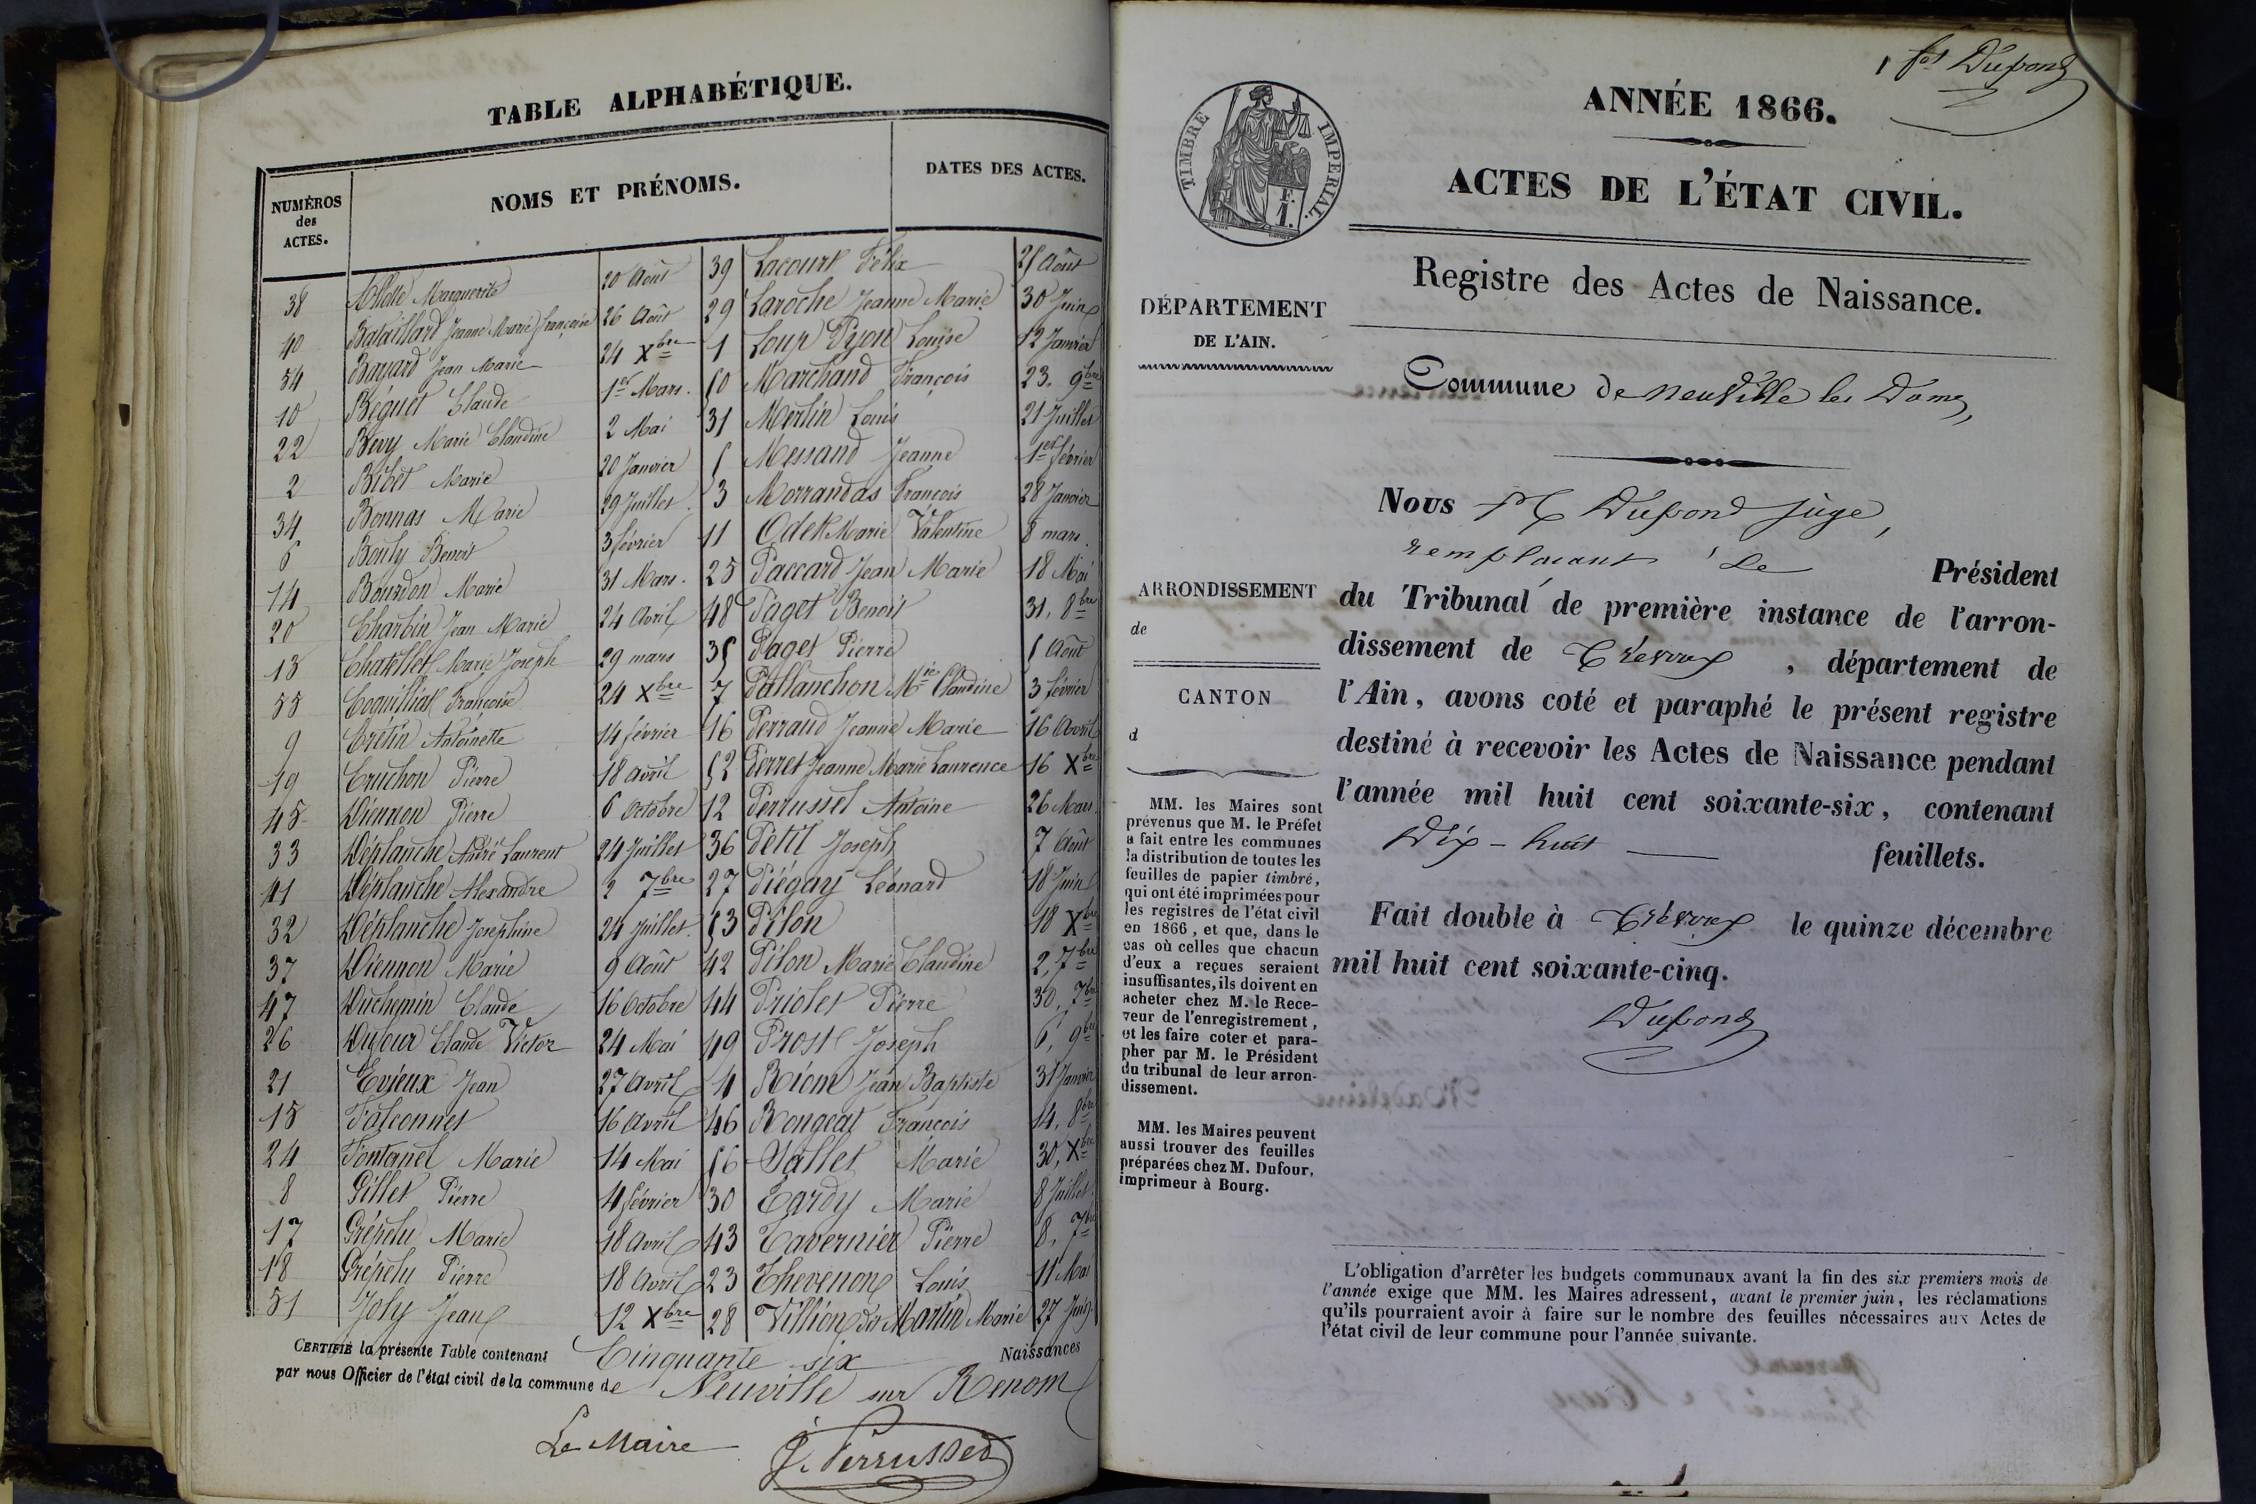 TABLE ALPHABÉTIQUE.
NUMÉROS des ACTES.
NOMS ET PRÉNOMS.
DATES DES ACTES.
38 Marguerite 20 Août
40 Bataillard Jeanne Marie françoise 26 Août
54 Bayard Jean Marie 24 Xbre
10 Béguet Claude 1er Mars.
22 Bevy Marie Claudine 2 Mai
2 Bibet Marie 20 Janvier
34 Bonnas Marie 29 Juillet.
6 Bouly Benoit 3 février
14 Bourdon Marie 31 Mars.
20 Charbin Jean Marie 24 Avril
13 Chatellet Marie Joseph 29 mars
55 Françoise 24 Xbre
9 Crétin Antoinette 14 février
19 Cruchon Pierre 18 avril
45 Diennon Pierre 6 Octobre
33 Déplanche André Laurent 24 Juillet
41 Déplanche Alexandre 2 7bre
32 Déplanche Joséphine 24 Juillet.
37 Diennon Marie 9 Août
47 Duchemin Claude 16 Octobre
26 Dufour Claude Victor 24 Mai
21 Evieux Jean 27 Avril
15 Falconnet 16 Avril
24 Fontanel Marie 14 Mai
8 Gillet Pierre 4 février
17 Grépelu Marie 18 Avril
18 Grépelu Pierre 18 Avril
51 Joly Jean 12 Xbre
39 Lacourt Félix 25 Août
29 Laroche Jeanne Marie 30 Juin
1 Loup Pyon Louise 12 Janvier
50 Marchand François 23. 9bre
31 Merlin Louis 21 Juillet
5 Messand Jeanne 1er février
3 Morrandas François 28 Janvier
11 Odet Marie Valentine 8 mars.
25 Paccard Jean Marie 18 Mai
48 Paget Benoit 31. 8bre
35 Paget Pierre 5 Août
7 Pallanchon Mie Claudine 3 février
16 Perraud Jeanne Marie 16 Avril
52 Perret Jeanne Marie Laurence 16 Xbre
12 Perrussel Antoine 26 Mars.
36 Petit Joseph 7 Août
27 Piégay Léonard 18 Juin
53 Pilon 18 Xbre
42 Pilon Marie Claudine 2, 7bre
44 Priolet Pierre 30, 7bre
49 Prost Joseph 6, 9bre
4 Riom Jean Baptiste 31 Janvier
46 Rongeat François 14, 8bre
56 Sallet Marie 30, Xbre
30 Tardy Marie 8 Juillet.
43 Tavernier Pierre 8, 7bre
23 Thevenon Louis 11 Mai
28 Villion dit Martin Marie 27 Juin
CERTIFIÉ la présente Table contenant Cinquante six Naissances
par nous Officier de l'état civil de la commune de Neuville sur Renom
Le Maire
J. Perrussel
1 fet Dupond
TIMBRE IMPERIAL.
ANNÉE 1866.
ACTES DE L'ÉTAT CIVIL.
Registre des Actes de Naissance.
DÉPARTEMENT
DE L'AIN.
Commune de Neuville les Dames,
Nous Dupond Juge,
remplaçant le Président
du Tribunal de première instance de l'arron-
dissement de Trévoux, département de
l'Ain, avons coté et paraphé le présent registre
destiné à recevoir les Actes de Naissance pendant
l'année mil huit cent soixante-six, contenant
Dix-huit feuillets.
Fait double à Trévoux le quinze décembre
mil huit cent soixante-cinq.
Dupond
ARRONDISSEMENT
de
CANTON
d
MM. les Maires sont
prévenus que M. le Préfet
a fait entre les communes
la distribution de toutes les
feuilles de papier timbré,
qui ont été imprimées pour
les registres de l'état civil
en 1866, et que, dans le
cas où celles que chacun
d'eux a reçues seraient
insuffisantes, ils doivent en
acheter chez M. le Rece-
veur de l'enregistrement,
et les faire coter et para-
pher par M. le Président
du tribunal de leur arron-
dissement.
MM. les Maires peuvent
aussi trouver des feuilles
préparées chez M. Dufour,
imprimeur à Bourg.
L'obligation d'arrêter les budgets communaux avant la fin des six premiers mois de
l'année exige que MM. les Maires adressent, avant le premier juin, les réclamations
qu'ils pourraient avoir à faire sur le nombre des feuilles nécessaires aux Actes de
l'état civil de leur commune pour l'année suivante.